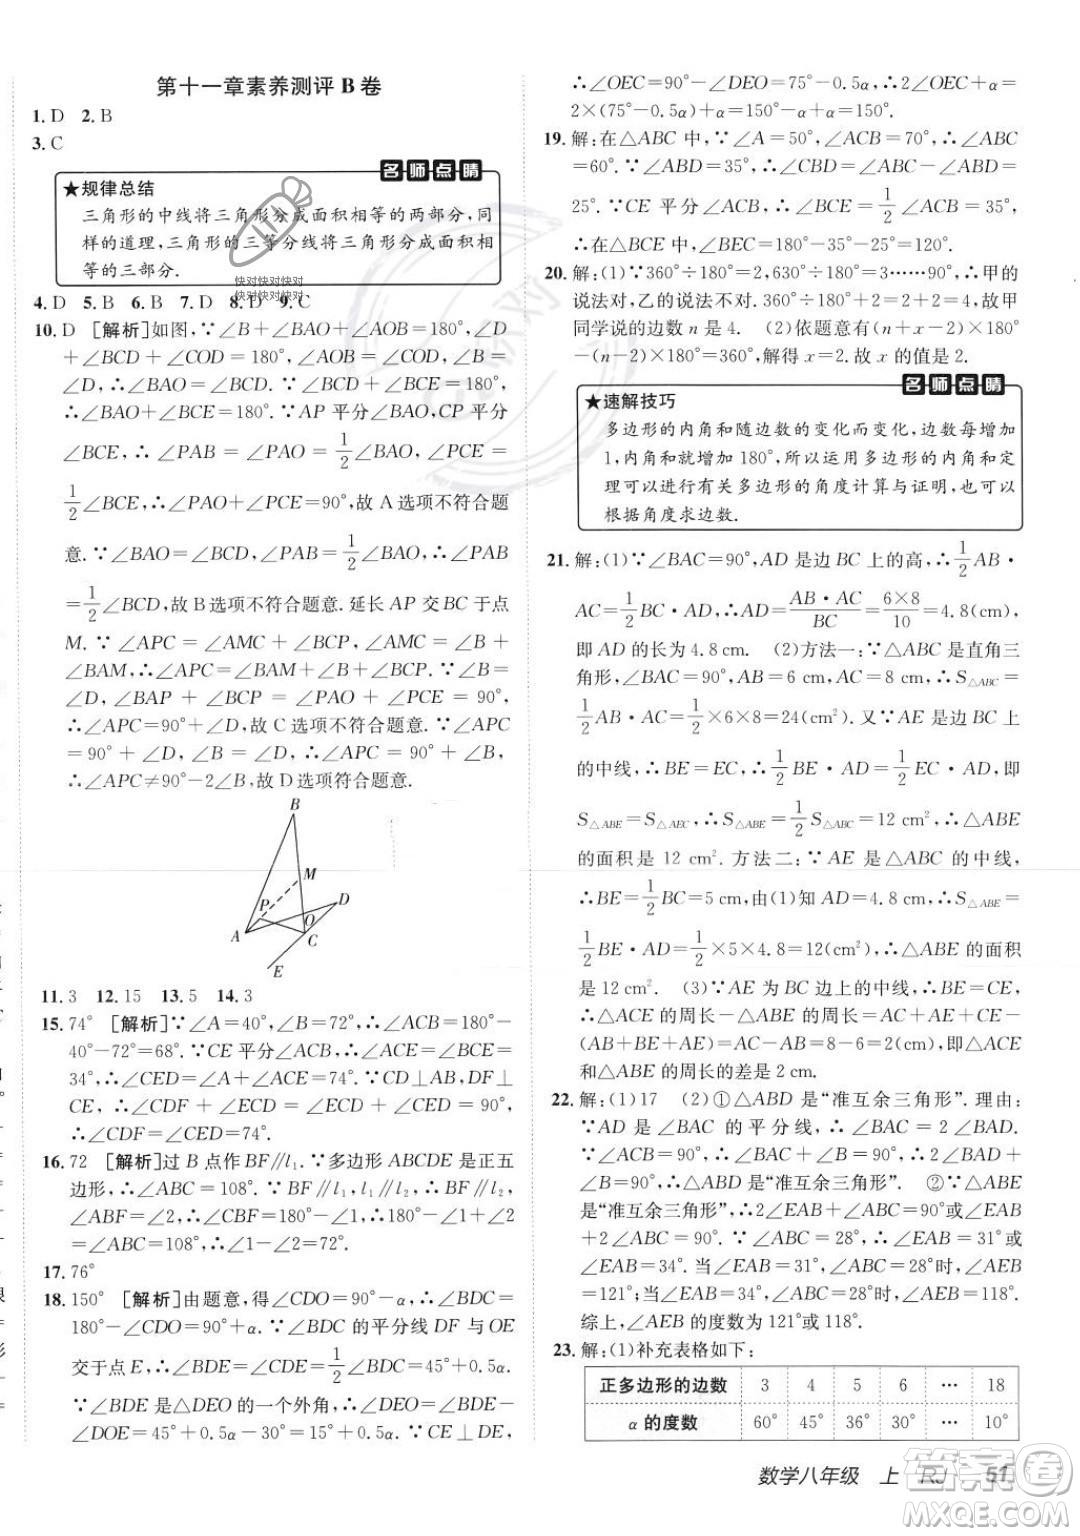 第十一章素养测评 B 卷
1. D  2. B
3. C
名师点睛
★规律总结
三角形的中线将三角形分成面积相等的两部分,同
样的道理,三角形的三等分线将三角形分成面积相
等的三部分.
快对快对快对
快对快对快对
4. D  5. B  6. B  7. D  8. D  9. C
10. D  [解析]如图,∵∠B+∠BAO+∠AOB=180°,∠D
+∠BCD+∠COD=180°,∠AOB=∠COD,∠B=
∠D,∴∠BAO=∠BCD.∵∠BCE+∠BCD=180°,
∴∠BAO+∠BCE=180°.∵AP 平分∠BAO,CP 平分
∠BCE,∴∠BAP=∠PAO=1/2∠BAO,∠PCE=
1/2∠BCE,∴∠PAO+∠PCE=90°,故 A 选项不符合题
意.∵∠BAO=∠BCD,∠PAB=1/2∠BAO,∴∠PAB
=1/2∠BCD,故 B 选项不符合题意.延长 AP 交 BC 于点
M.∵∠APC=∠AMC+∠BCP,∠AMC=∠B+
∠BAM,∴∠APC=∠BAM+∠B+∠BCP.∵∠B=
∠D,∠BAP+∠BCP=∠PAO+∠PCE=90°,
∴∠APC=90°+∠D,故 C 选项不符合题意.∵∠APC
=90°+∠D,∠B=∠D,∴∠APC=90°+∠B,
∴∠APC≠90°-2∠B,故 D 选项符合题意.
B
M
P
D
A
O
C
E
11. 3  12. 15  13. 5  14. 3
15. 74°  [解析]∵∠A=40°,∠B=72°,∴∠ACB=180°-
40°-72°=68°.∵CE 平分∠ACB,∴∠ACE=∠BCE=
34°,∴∠CED=∠A+∠ACE=74°.∵CD⊥AB,DF⊥
CE,∴∠CDF+∠ECD=∠CED+∠ECD=90°,
∴∠CDF=∠CED=74°.
16. 72  [解析]过 B 点作 BF∥l₁.∵多边形 ABCDE 是正五
边形,∴∠ABC=108°.∵BF∥l₁,l₁∥l₂,∴BF∥l₂,
∠ABF=∠2,∴∠CBF=180°-∠1,∴180°-∠1+∠2
=∠ABC=108°,∴∠1-∠2=72°.
17. 76°
18. 150°  [解析]由题意,得∠CDO=90°-α,∴∠BDC=
180°-∠CDO=90°+α.∵∠BDC 的平分线 DF 与 OE
交于点 E,∴∠BDE=∠CDE=1/2∠BDC=45°+0.5α.
∵∠BDE 是△DEO 的一个外角,∴∠DEO=∠BDE-
∠DOE=45°+0.5α-30°=15°+0.5α.∵OE⊥CE,
∴∠OEC=90°,∴∠DEC=75°-0.5α,∴∠DEC+α=
2×(75°-0.5α)+α=150°-α+α=150°.
19. 解:在△ABC 中,∵∠A=50°,∠ACB=70°,∴∠ABC
=60°.∵∠ABD=35°,∴∠CBD=∠ABC-∠ABD=
25°.∵CE 平分∠ACB,∴∠BCE=1/2∠ACB=35°,
∴在△BCE 中,∠BEC=180°-25°-35°=120°.
20. 解:(1)∵360°÷180°=2,630°÷180°=3……90°,∴甲的
说法对,乙的说法不对.360°÷180°+2=2+2=4,故甲
同学说的边数 n 是 4.  (2)依题意有(n+x-2)×180°
-(n-2)×180°=360°,解得 x=2.故 x 的值是 2.
名师点睛
★速解技巧
多边形的内角和随边数的变化而变化,边数每增加
1,内角和就增加 180°,所以运用多边形的内角和定
理可以进行有关多边形的角度计算与证明,也可以
根据角度求边数.
21. 解:(1)∵∠BAC=90°,AD 是边 BC 上的高,∴1/2AB·
AC=1/2BC·AD,∴AD=AB·AC/BC=6×8/10=4.8(cm),
即 AD 的长为 4.8 cm.  (2)方法一:∵△ABC 是直角三
角形,∠BAC=90°,AB=6 cm,AC=8 cm,∴S△ABC=
1/2AB·AC=1/2×6×8=24(cm²).又∵AE 是边 BC 上
的中线,∴BE=EC,∴1/2BE·AD=1/2EC·AD,即
S△ABE=S△AEC,∴S△ABE=1/2S△ABC=12 cm²,∴△ABE
的面积是 12 cm².方法二:∵AE 是△ABC 的中线,
∴BE=1/2BC=5 cm,由(1)知 AD=4.8 cm,∴S△ABE=
1/2BE·AD=1/2×5×4.8=12(cm²),∴△ABE 的面积
是 12 cm².  (3)∵AE 为 BC 边上的中线,∴BE=CE,
∴△ACE 的周长-△ABE 的周长=AC+AE+CE-
(AB+BE+AE)=AC-AB=8-6=2(cm),即△ACE
和△ABE 的周长的差是 2 cm.
22. 解:(1)17  (2)①△ABD 是“准互余三角形”.理由:
∵AD 是∠BAC 的平分线,∴∠BAC=2∠BAD.
∵∠ACB=90°,∴∠BAC+∠B=90°,∴2∠BAD+
∠B=90°,∴△ABD 是“准互余三角形”.  ②∵△ABE
是“准互余三角形”,∴2∠EAB+∠ABC=90°或∠EAB
+2∠ABC=90°.∵∠ABC=28°,∴∠EAB=31°或
∠EAB=34°.当∠EAB=31°,∠ABC=28°时,∠AEB
=121°;当∠EAB=34°,∠ABC=28°时,∠AEB=118°.
综上,∠AEB 的度数为 121°或 118°.
23. 解:(1)补充表格如下:
正多边形的边数 3 4 5 6 … 18
α 的度数 60° 45° 36° 30° … 10°
数学八年级 上 RJ 51
答案圈
MXQE.COM